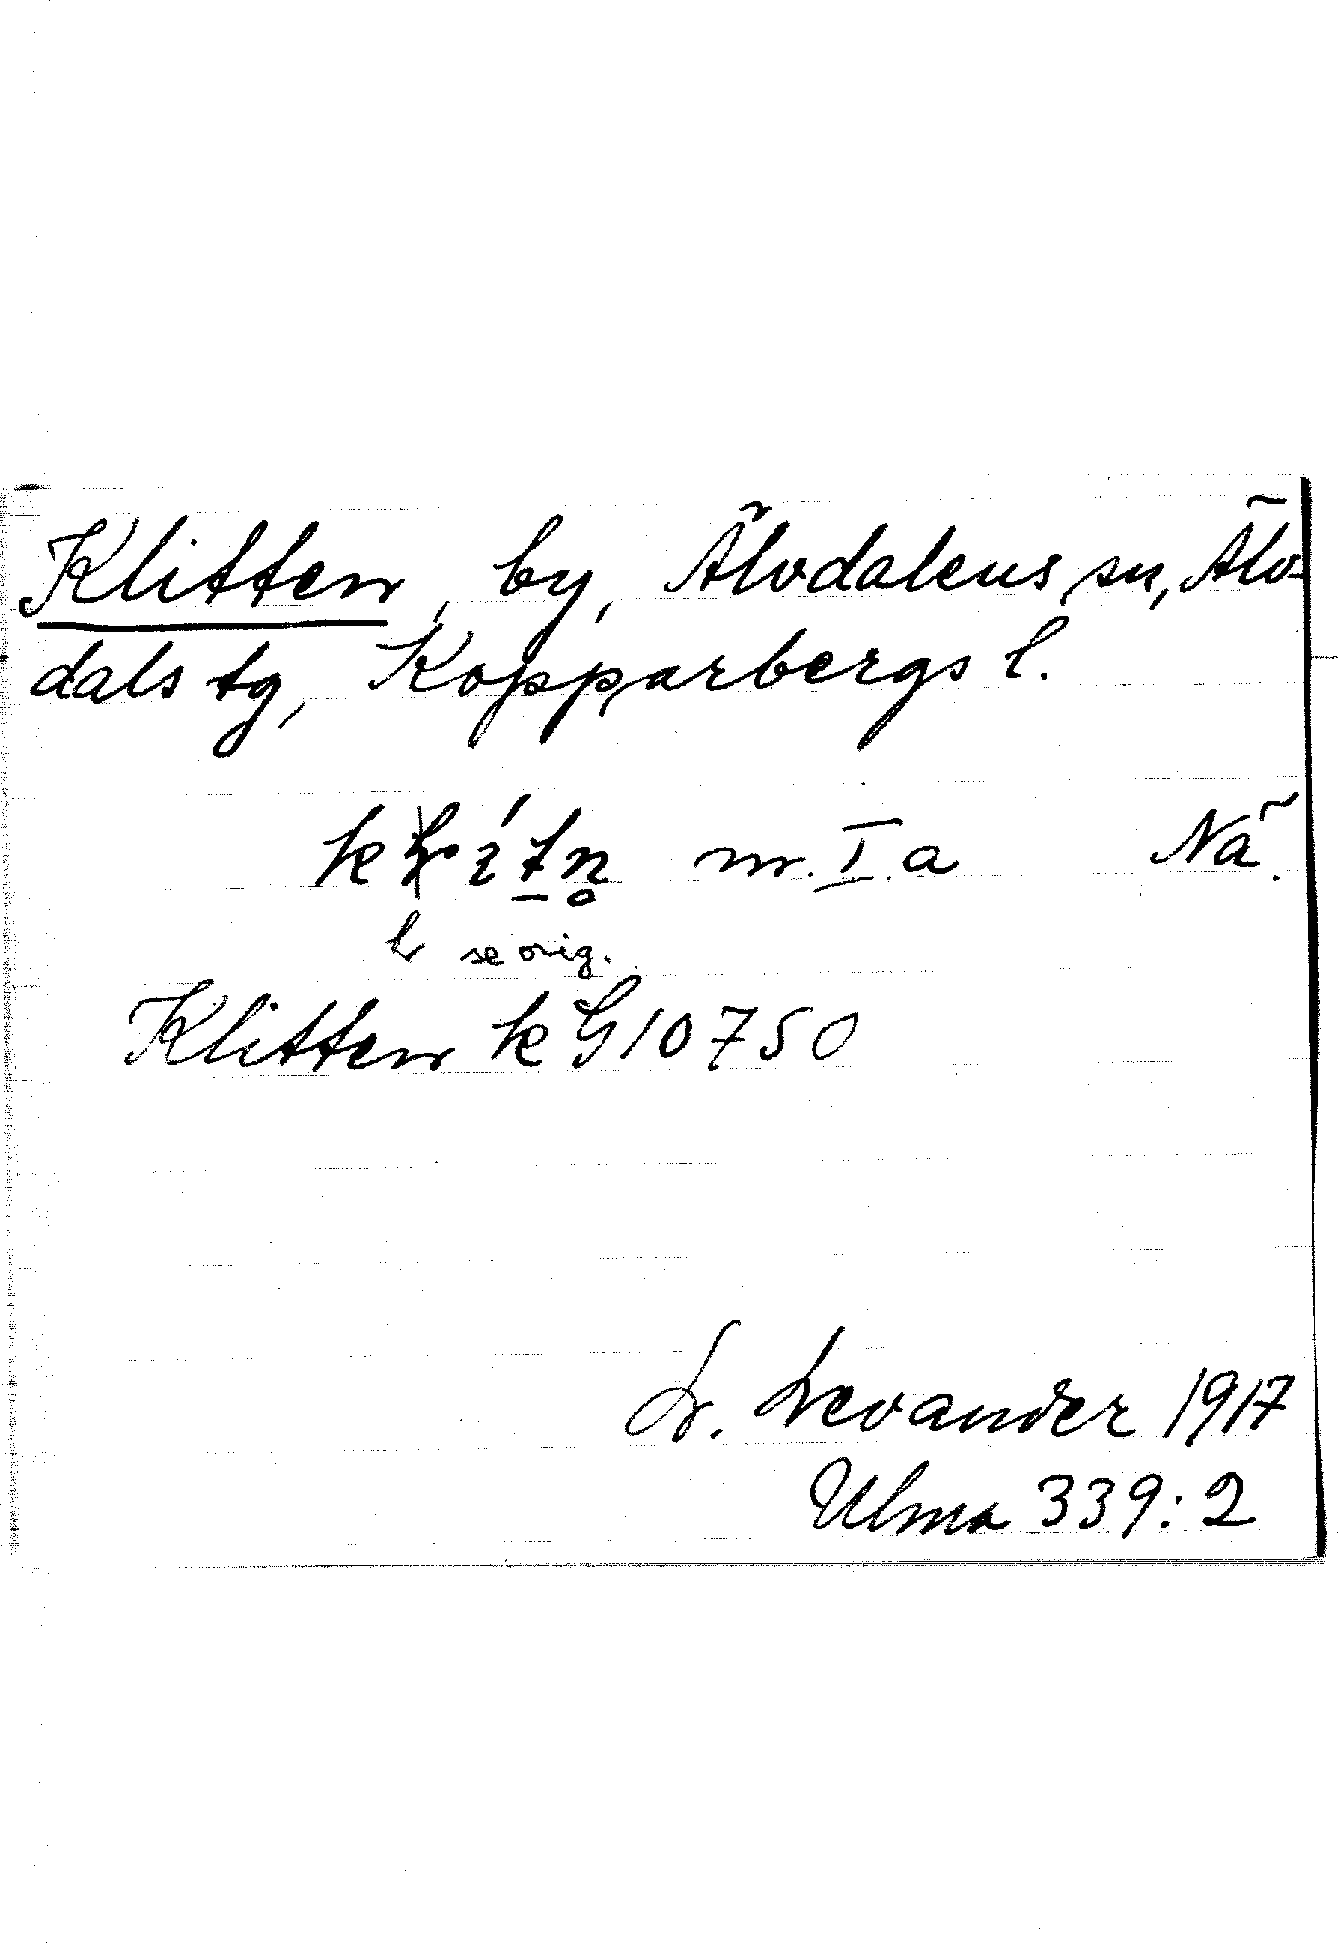 Klitten, by, Älvdalens sn, Älv-
dals tg, Kopparbergs l.
m. I a Nä.
l se orig.
Klitten k G 10750
L. Levander 1917
Ulma 339:2